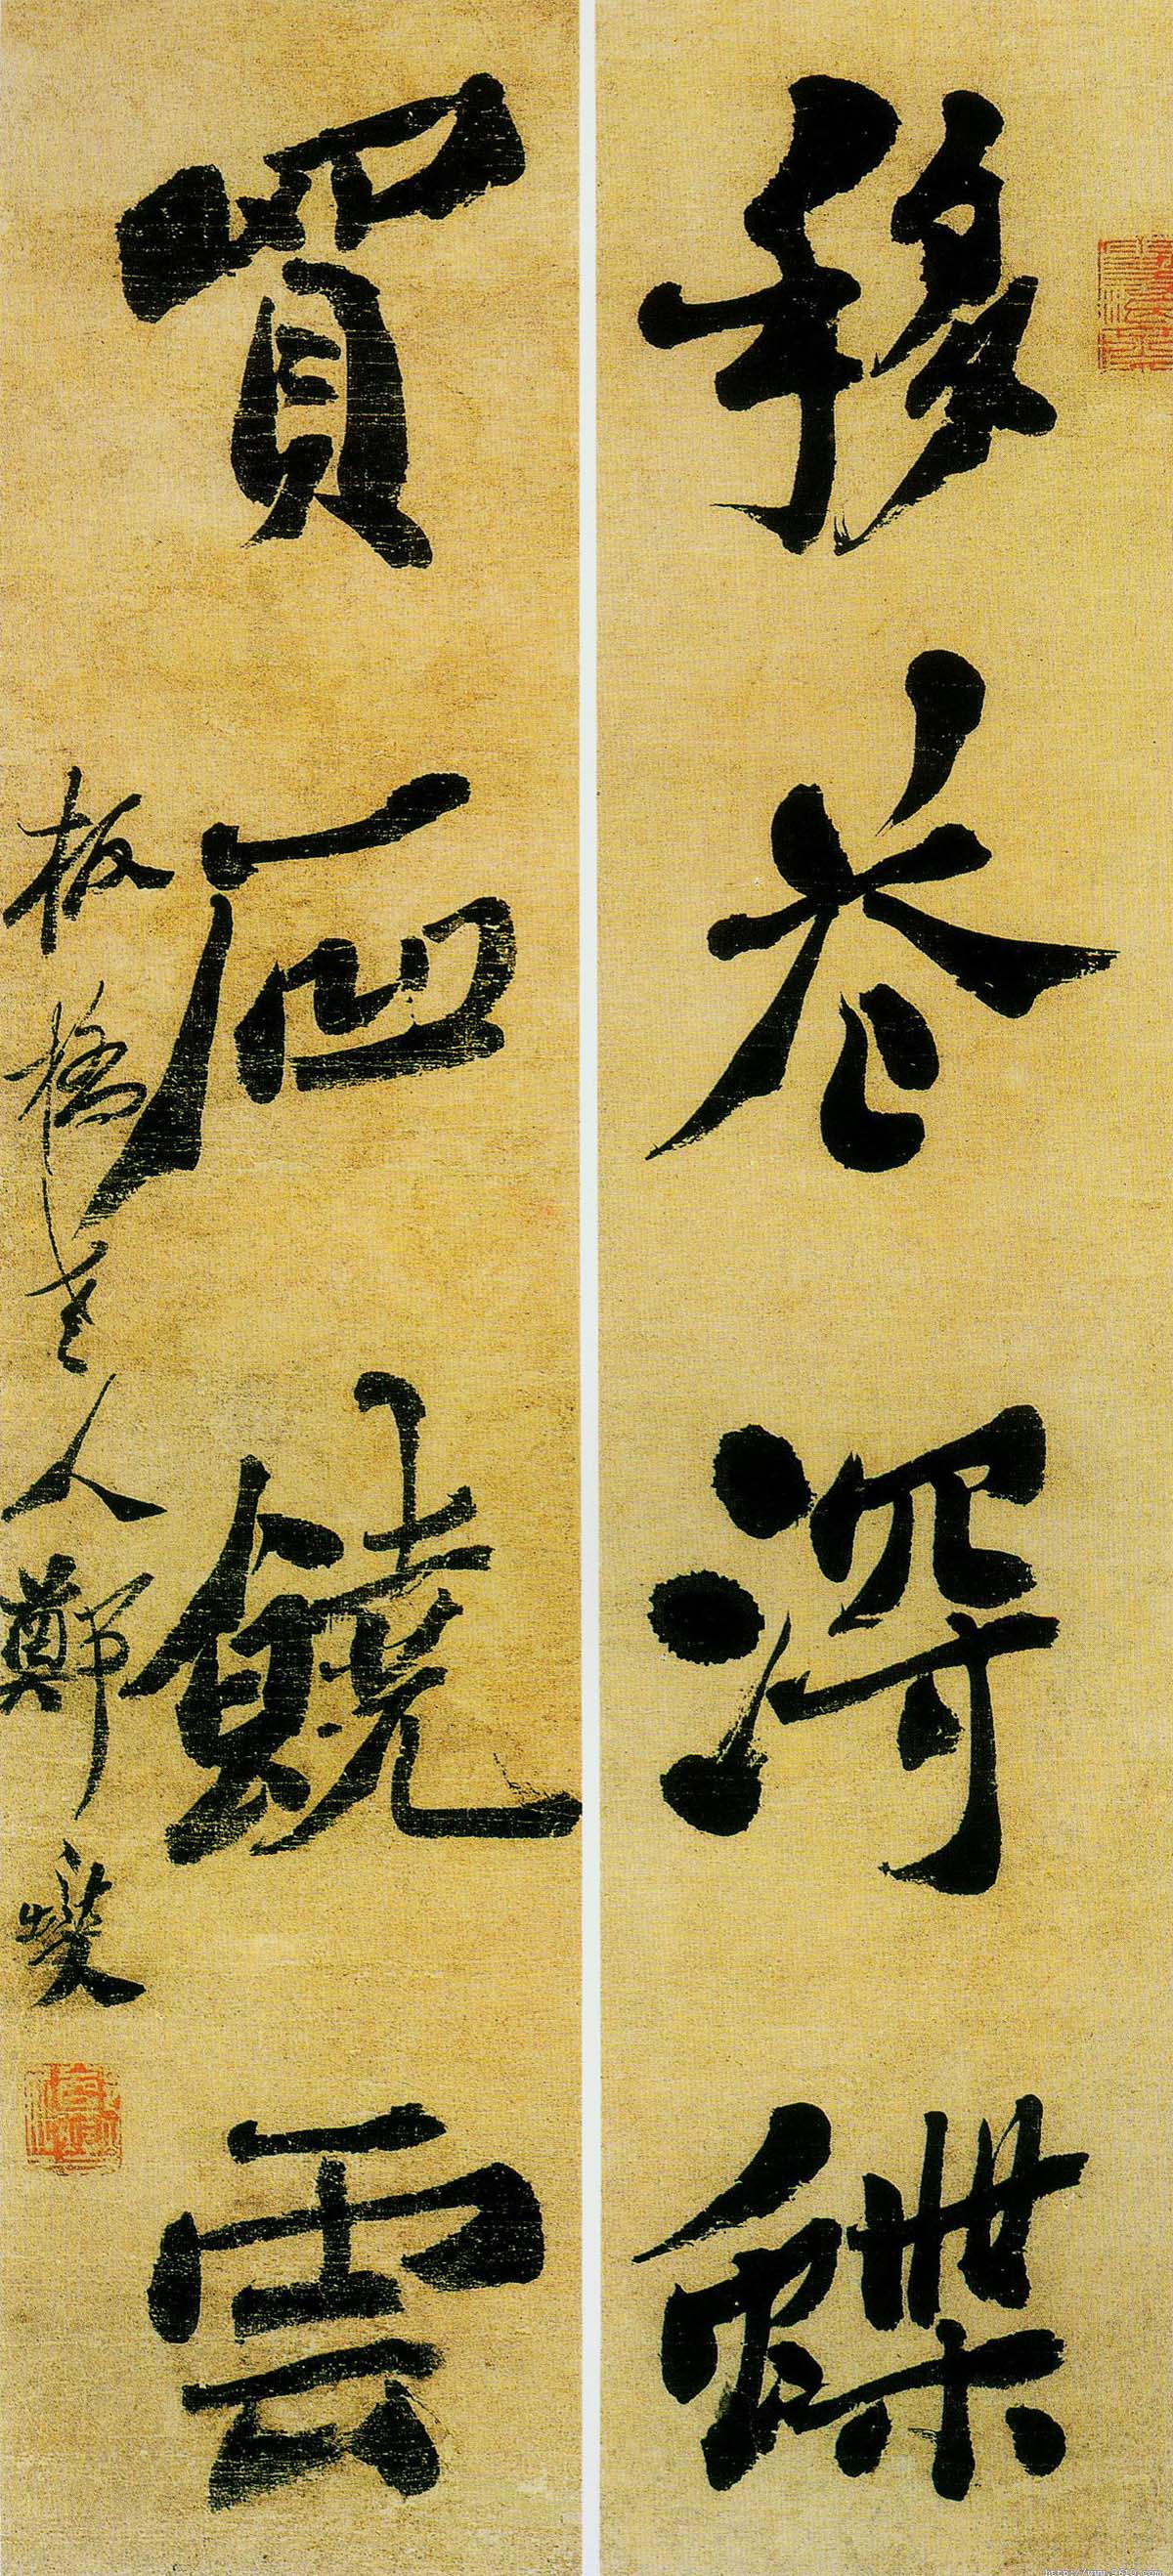 移花得蝶
買石饒雲
板橋老人鄭燮
http://www.9610.com